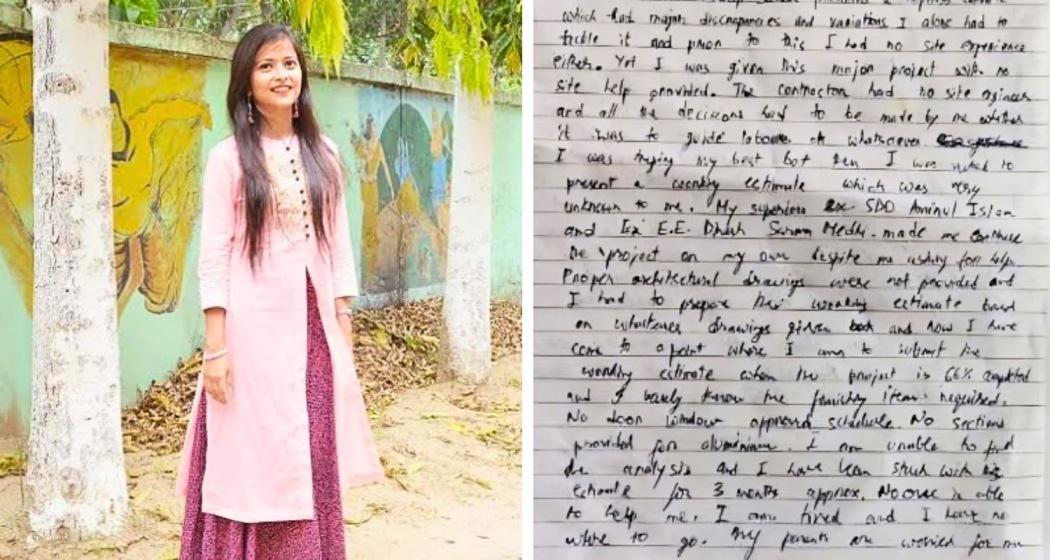 which had major discrepancies and variations I alone had to
tackle it and prior to this I had no site experience
either. Yet I was given this major project with no
site help provided. The contractor had no site egineer
and all the decisions had to be made by me whether
it was to guide labour or whatsoever
I was trying my best but then I was asked to
present a working estimate which was very
unknown to me. My superiors ex SDO Aminul Islam
and Ex E.E. Medhi. made me continue
the project on my own despite me asking for help.
Proper architectural drawings were not provided and
I had to prepare the working estimate based
on whatever drawings given and now I have
come to a point where I am to submit the
working estimate when the project is 66% completed
and I barely know the finishing items required.
No door window approved schedule. No sections
provided for aluminium. I am unable to find
the analysis and I have been stuck with
estimate for 3 months approx. No one is able
to help me. I am tired and I have no
where to go. My parents are worried for me